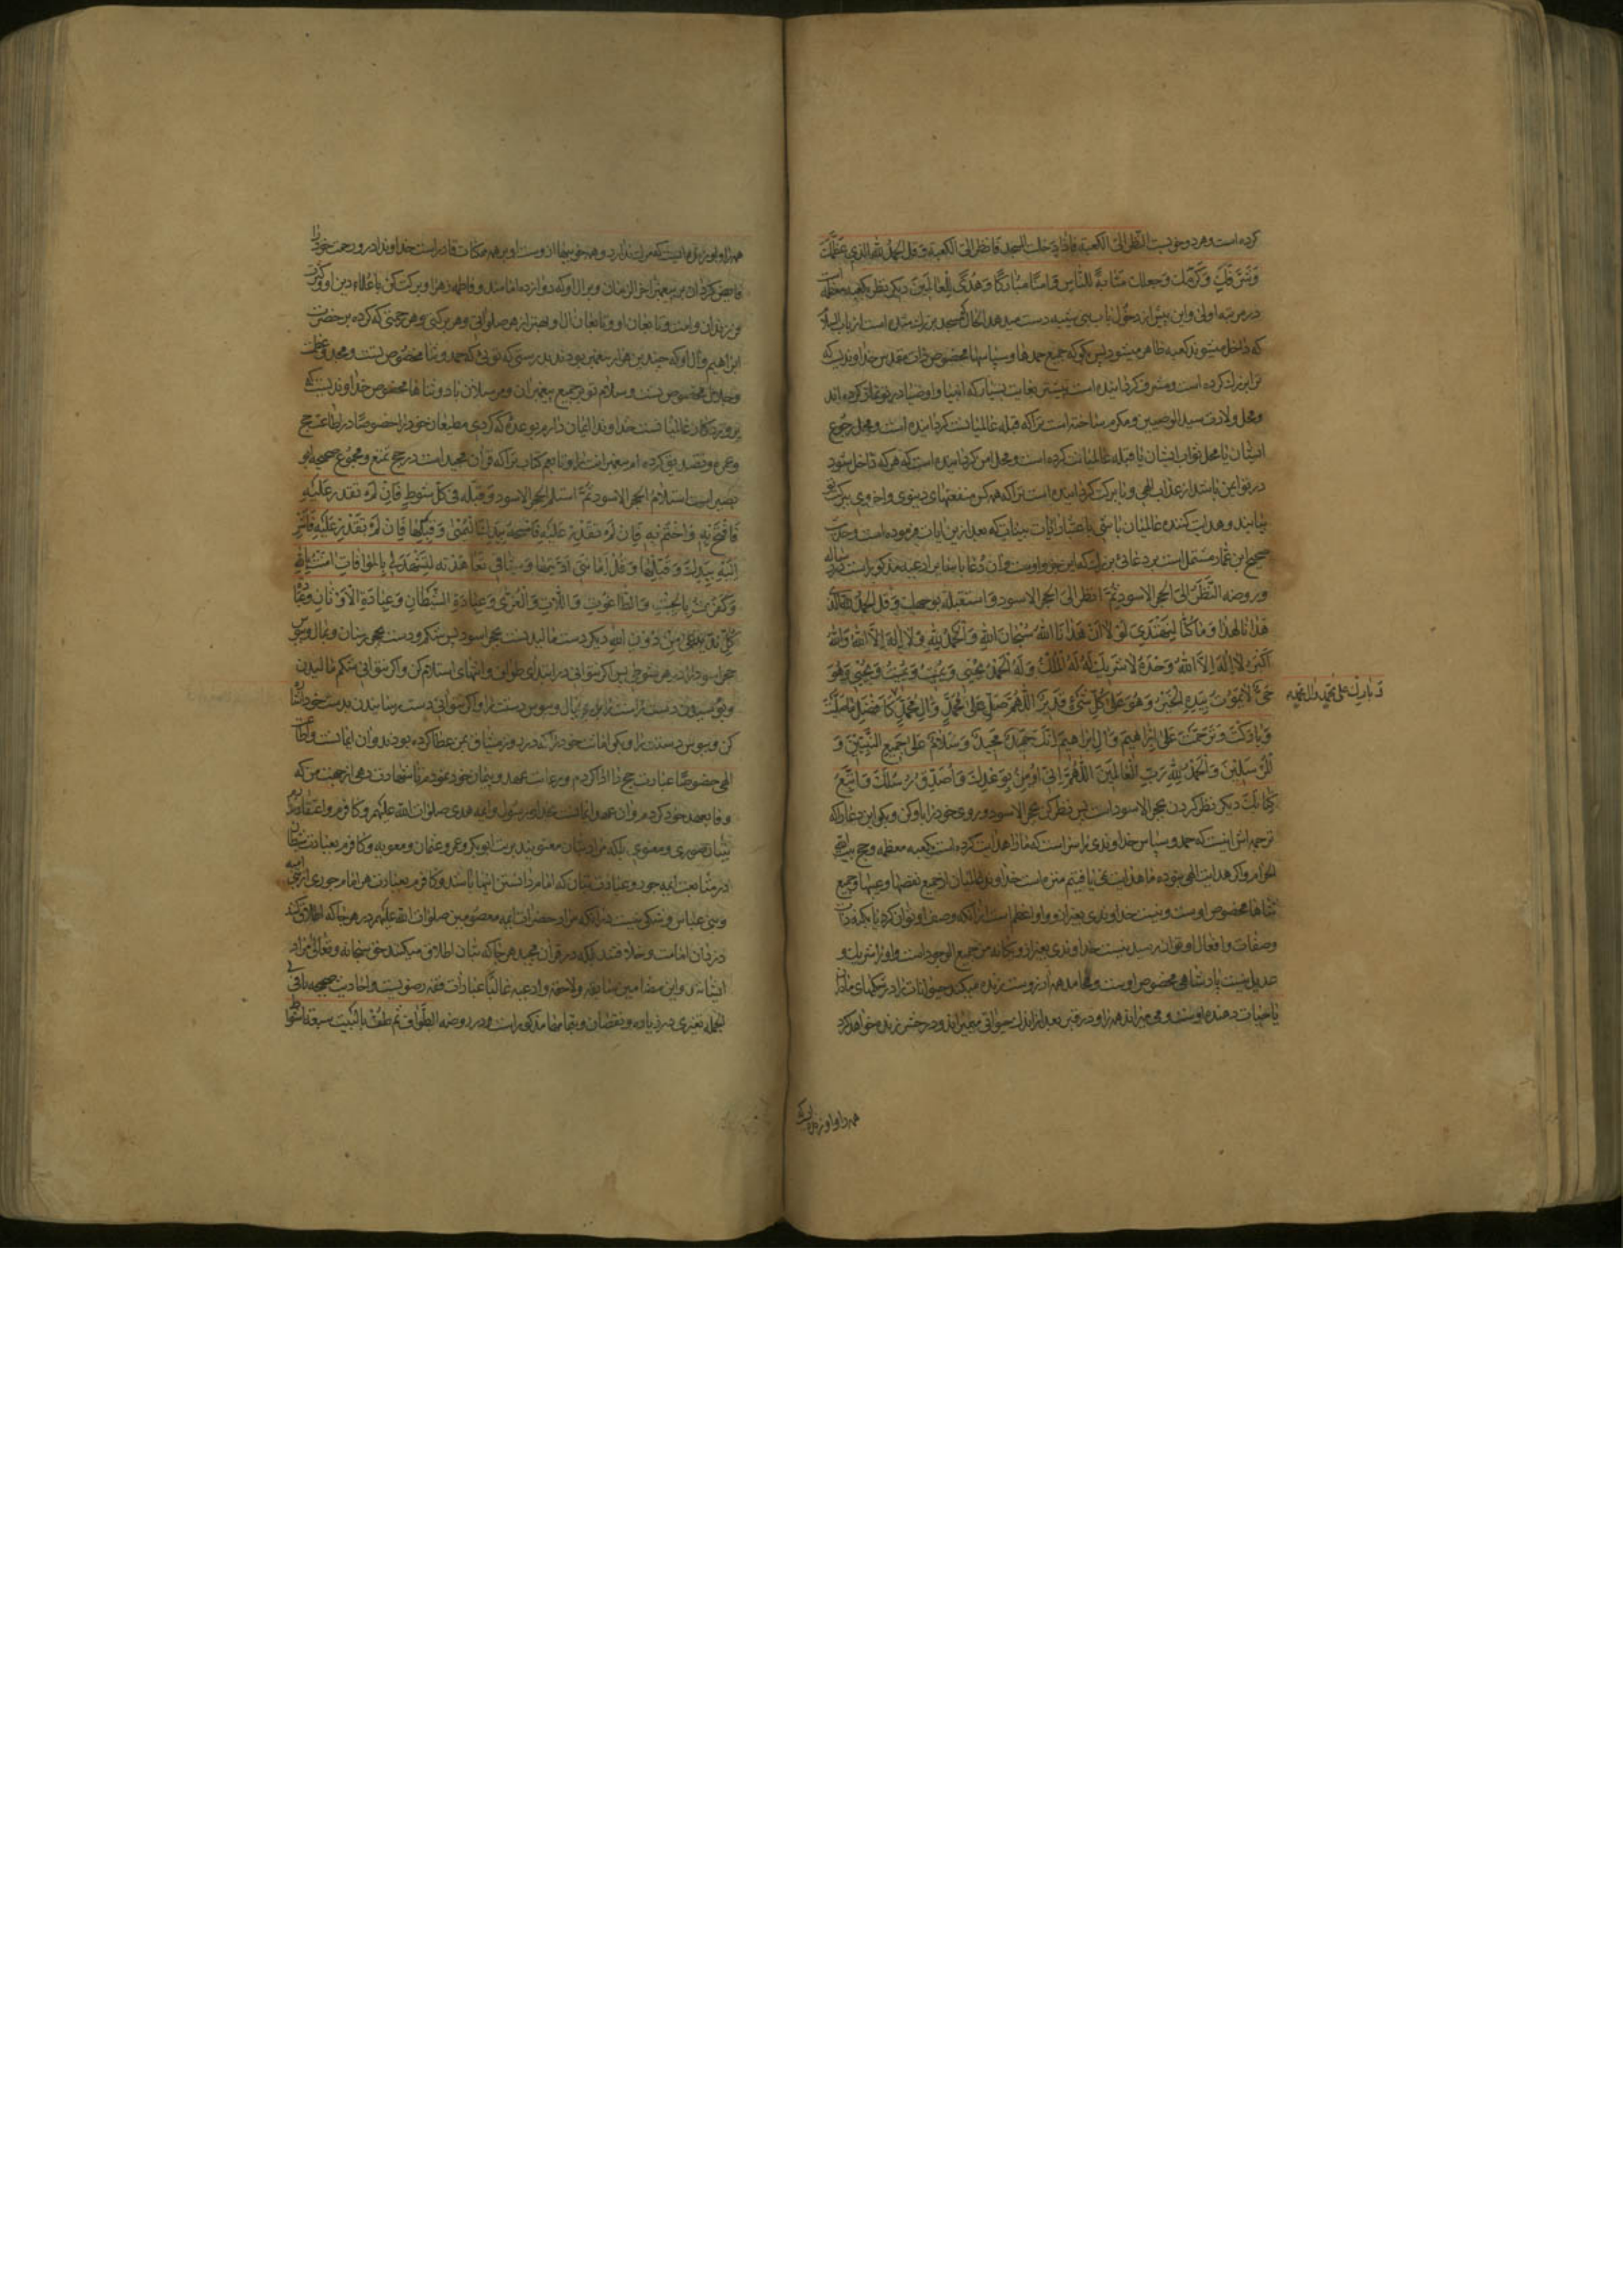 کرده است و هر دو خوبست النظر الی الکعبة فاذا دخلت المسجد فانظر الی الکعبة و قل الحمد لله الذی عظمك
وشرفك وکرمك وجعلك مثابة للناس وامنا مبارکا وهدی للعالمین دیکر نظر بکعبه معظمه است
در مرتبه اولی و این پیش از دخول باب بنی شیبه دست میدهد
که داخل میشوند کعبه ظاهر میشود پس بکو که جمیع حمدها و سپاسها مخصوص ذات مقدس خداوندیست که
ترا بزرك کرده است و مشرف کردانیده است بغایت بسیار که انبیا و اوصیا در تو نماز کرده اند
و محل ولادت سید الوصیین و مکرم ساخته است ترا که قبله عالمیانت کردانیده است و محل رجوع
ایشان یا محل ثواب ایشان یا قبله عالمیانت کرده است و محل امن کردانیده است که هر که داخل شود
در تو ایمن باشد از عذاب الهی و با برکت کردانیده است ترا که همه کس منفعتهای دنیوی و اخروی ببرکت تو
بیابند و هدایت کننده عالمیان باشی باعتبار آیات بینات که بعد ازین آیات فرموده است و در
صحیح ابن عمار مشتمل است بر دعائی بزرك
و روضه النظر الی الحجر الاسود ثم انظر الی الحجر الاسود و استقبله بوجهك و قل الحمد لله الذی
هدانا لهذا وما کنا لنهتدی لولا ان هدانا الله سبحان الله والحمد لله ولا اله الا الله والله
اکبر لا اله الا الله وحده لا شریك له له الملك وله الحمد یحیی ویمیت ویمیت ویحیی وهو
حی لا یموت بیده الخیر وهو علی کل شیء قدیر اللهم صل علی محمد وآل محمد کافضل ما صلیت
وبارك علی محمد وآل محمد
وبارکت وترحمت علی ابراهیم وآل ابراهیم انك حمید مجید وسلام علی جمیع النبیین و
المرسلین والحمد لله رب العالمین اللهم انی اومن بوعدك واصدق رسلك واتبع
کتابك دیکر نظر کردن بحجر الاسود است پس نظر کن بحجر الاسود و روی خود را باو کن و بکو این دعا را که
ترجمه اش اینست که حمد و سپاس خداوندی راست که ما را هدایت کرده است بکعبه معظمه و حج بیت الله
الحرام و اکر هدایت الهی نبوده ما هدایت نمی یافتیم منزه است خداوند عالمیان از جمیع نقصها و عیبها و جمیع
ثناها مخصوص اوست و نیست خداوندی بغیر از و و او اعظم است از آنکه وصف او توان کرد یا بکنه ذات
و صفات و افعال او توان رسید نیست خداوندی بغیر از و یکانه من جمیع الوجوه است و او را شریك و
عدیل نیست پادشاهی مخصوص اوست و محامد همه از وست زنده میکند حیوانات را در شکمهای مادران
یا حیات دهنده اوست و می میراند همه را و در قبر بعد از اندك حیوتی میمیراند و در حشر زنده خواهد کرد
همه را و او زنده ایست که
فایض کردان بر پیغمبر آخر الزمان و بر آل او که دوازده امامند و فاطمه زهرا و برکت کن
و فرزندان و امت و تابعان او و تابعان آل او بهتر از هر صلواتی و هر برکتی و هر رحمتی که کرده بر حضرت
ابراهیم و آل او که چندین هزار پیغمبر بودند بدرستی که تویی که حمد و ثنا مخصوص تست و مجد و عظمت
و جلال مخصوص تست و سلام تو بر جمیع پیغمبران و مرسلان باد و ثناها مخصوص خداوندیست که
پروردکار عالمیانست خداوندا ایمان دارم بوعده که کردی مطیعان خود را خصوصا در اطاعت حج
و عمره و تصدیق کرده ام پیغمبرانت را و تابعم کتاب ترا که قرآن مجید است در حج تمتع و مجموع صحیحه ابو
بصیر است استلام الحجر الاسود ثم استلم الحجر الاسود و قبله فی کل شوط فان لم تقدر علیه
فافتح به واختم به فان لم تقدر علیه فامسحه بیدك الیمنی وقبلها فان لم تقدر علیه فاشر
الیه بیدك وقبلها وقل امانتی ادیتها ومیثاقی تعاهدته لتشهد لی بالموافاة امنت بالله
وکفرت بالجبت والطاغوت واللات والعزی وعبادة الشیطان وعبادة الاوثان وعبادة
کل ند یدعی من دون الله دیکر دست مالیدنست بحجر اسود پس شکم و دست بحجر رسان و بمال و ببوس
حجر اسود را در هر شوطی پس اکر نتوانی در ابتدای طواف و انتهای استلام کن و اکر نتوانی شکم مالیدن
و بوسیدن دست راست را برو بمال و ببوس دستت را و اکر نتوانی دست رسانیدن بدست خود اشاره
کن و ببوس دستت را و بکو امانت خود را که در روز میثاق بمن عطا کرده بودند و آن ایمانست و اطاعت
الهی خصوصا عبادت حج را ادا کردم و رعایت عهد و پیمان خود نمودم تا شهادت دهی از جهت من که
وفا بعهد خود کردم و آن عهد ایمانست بخدا و رسول و ائمه هدی صلوات الله علیهم و کافرم
بتان صوری و معنوی بلکه مراد بتان معنویند بت ابوبکر و عمر و عثمان و معویه و کافرم بعبادت شیطان
در متابعت ائمه جور و عبادت بتان که امام دانستن اینها باشد و کافرم بعبادت هر امام جوری از بنی امیه
و بنی عباس و شکی نیست در آنکه مراد حضرات ائمه معصومین صلوات الله علیهم در هر جا که اطلاق کنند
دزدان امامت و خلافتند بلکه در قرآن مجید هر جا که بتان اطلاق میکنند حق سبحانه و تعالی مراد
ایشانند و این مضامین سابقه و لاحقه و ادعیه غالبا عبارات فقه رضویست و احادیث صحیحه باقی
بجمله تغییری در زیاده و نقصان و بتمامها مذکور است و در روضه الطواف ثم طف بالبیت سبعة اشواط